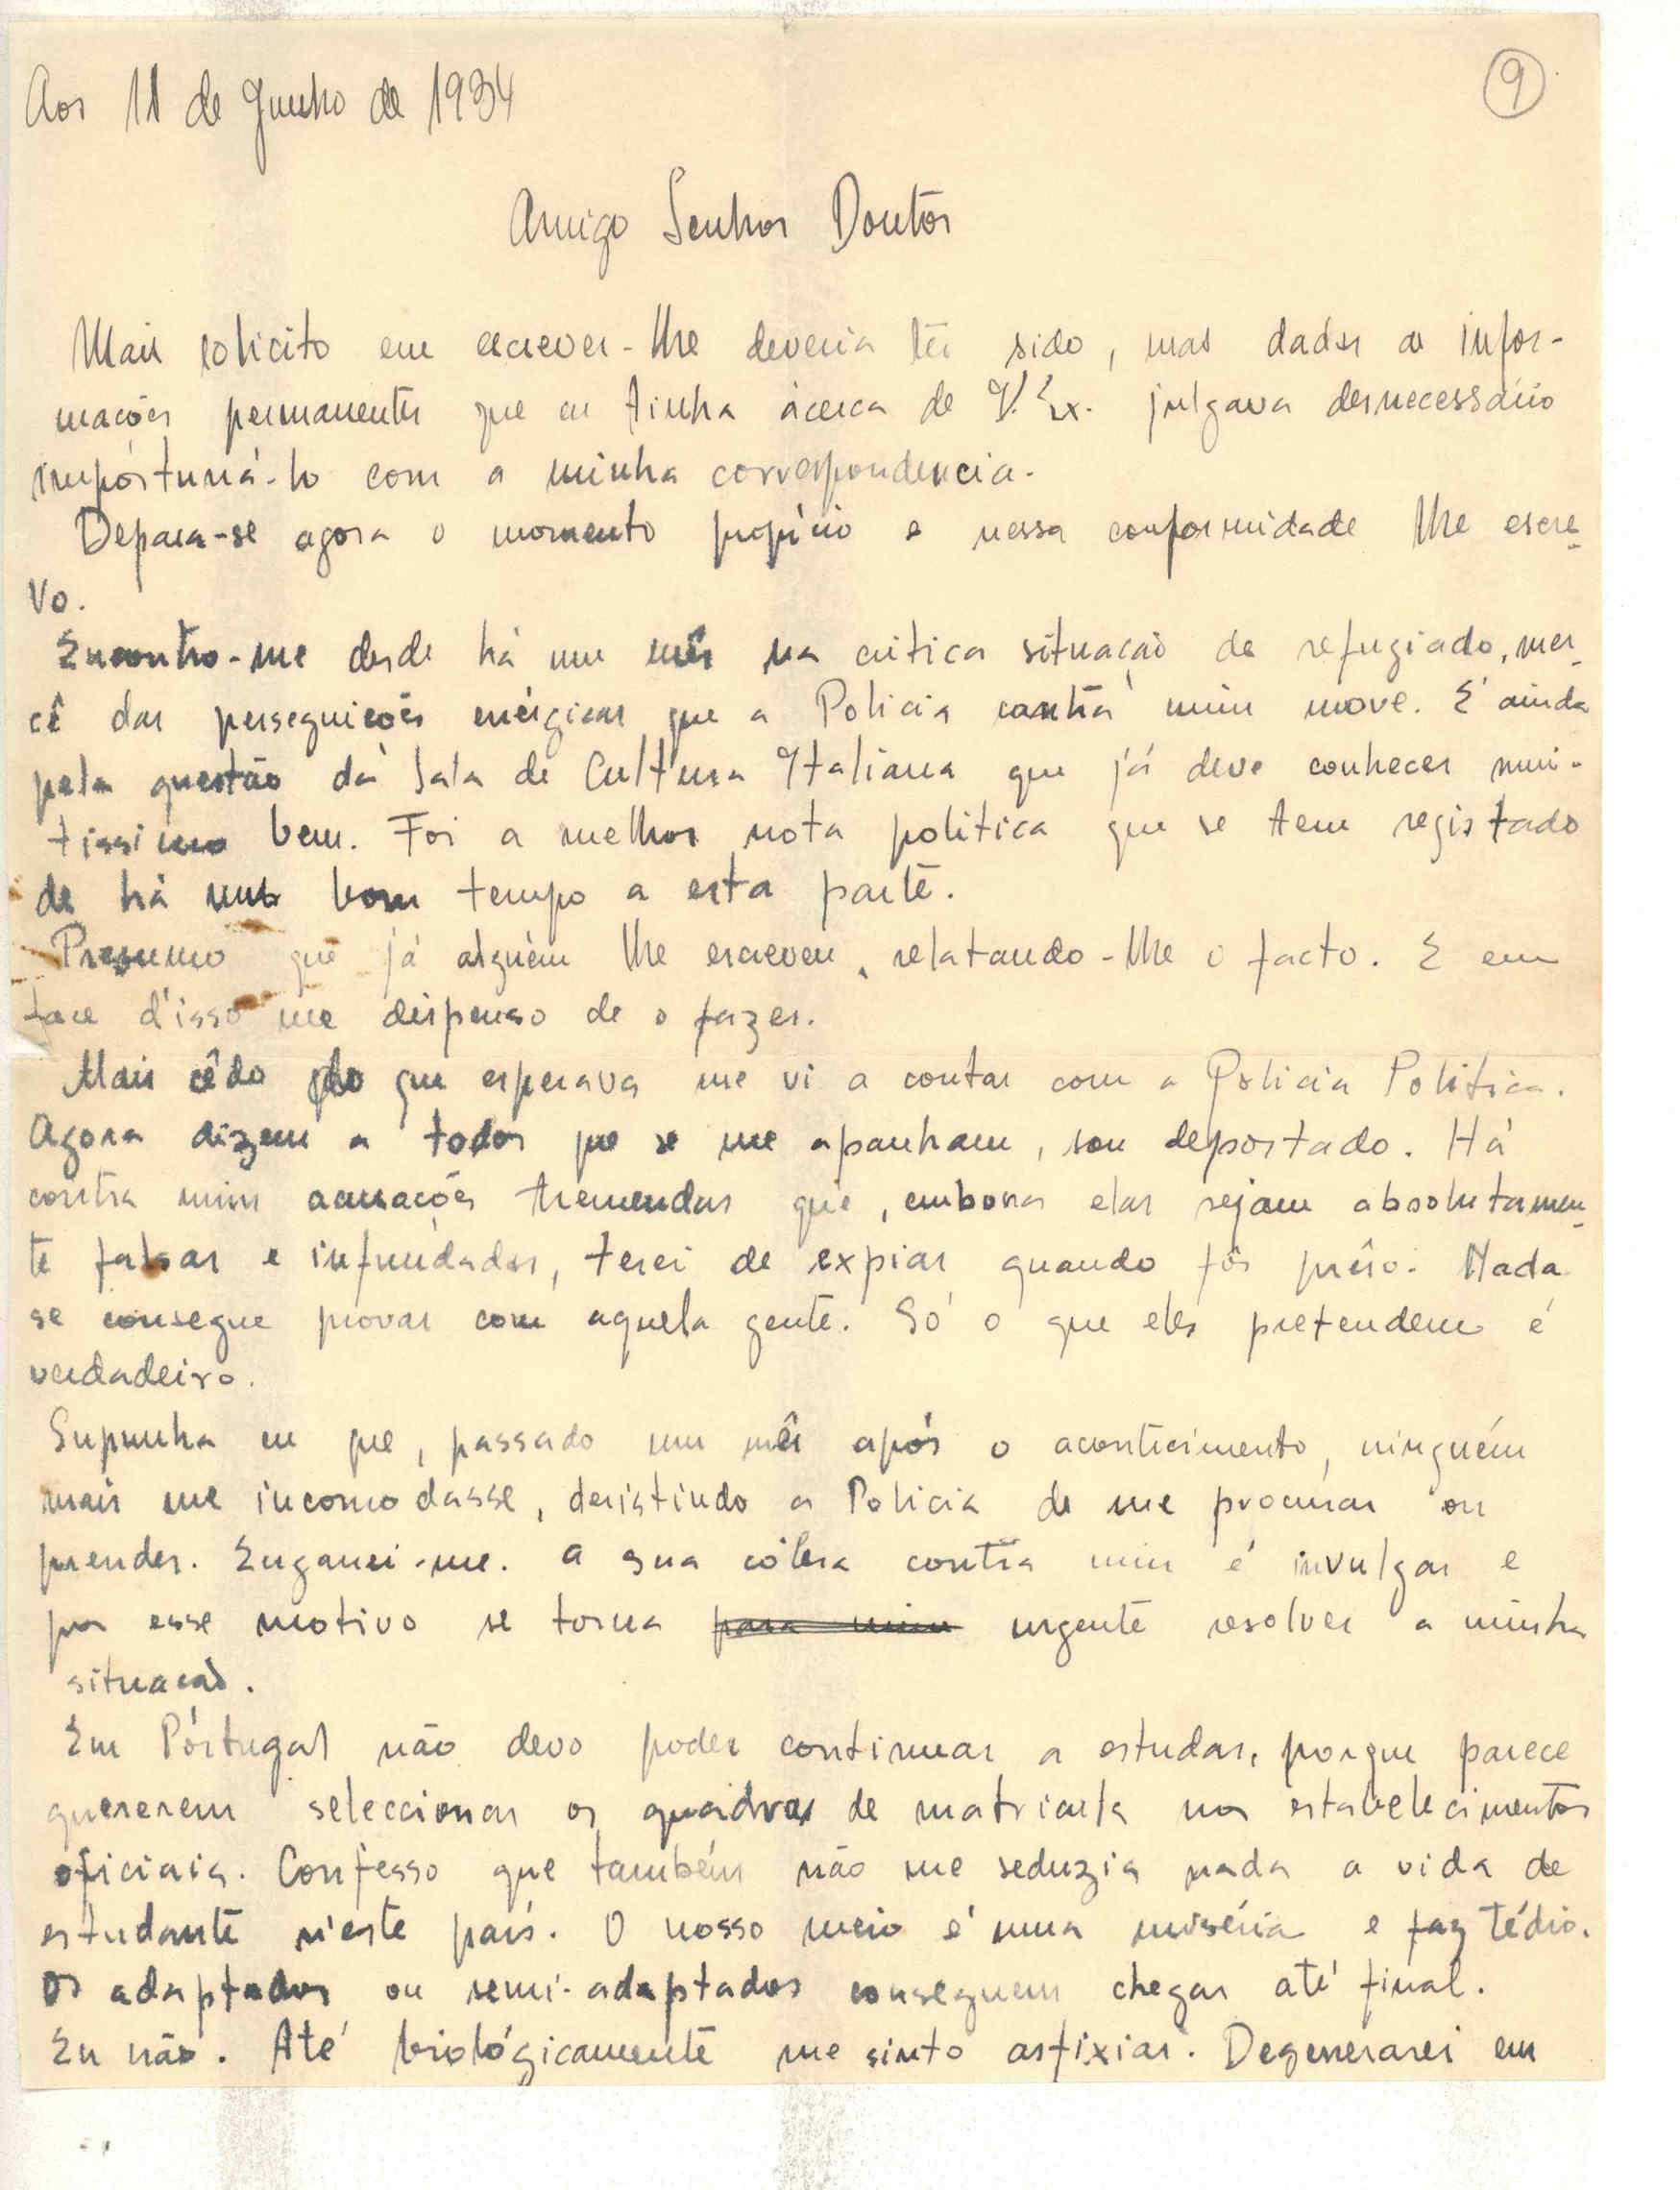 Aos 11 de Junho de 1934
9
Amigo Senhor Doutôr
Mais solicito em escrever-lhe deveria têr sido, mas dadas as infor-
mações permanentes que eu tinha àcerca de V. Ex. julgava desnecessário
impórtuná-lo com a minha correspondencia.
Depara-se agora o momento propício e nessa conformidade lhe escre-
vo.
Encontro-me desde há um mês na critica situação de refugiado, mer-
cê das perseguições enérgicas que a Policia contra mim move. É ainda
pela questão da Sala de Cultura Italiana que já deve conhecer mui-
tissimo bem. Foi a melhor nota politica que se tem registado
de há um bom tempo a esta parte.
Presumo que já alguém lhe escreveu, relatando-lhe o facto. E em
face d'isso me dispenso de o fazer.
Mais cêdo do que esperava me vi a contas com a Policia Politica.
Agora dizem a todos que se me apanham, sou deportado. Há
contra mim acusações tremendas que, embora elas sejam absolutamen-
te falsas e infundadas, terei de expiar quando fôr prêso. Nada
se consegue provar com aquela gente. Só o que eles pretendem é
verdadeiro.
Supunha eu que, passado um mês após o acontecimento, ninguém
mais me incomodasse, desistindo a Policia de me procurar ou
prender. Enganei-me. A sua cólera contra mim é invulgar e
por esse motivo se torna para mim urgente resolver a minha
situação.
Em Pórtugal não devo poder continuar a estudar, porque parece
quererem seleccionar os quadros de matricula nos estabelecimentos
oficiais. Confesso que também não me seduzia nada a vida de
estudante n'este país. O nosso meio é uma miséria e faz tédio.
Os adaptados ou semi-adaptados conseguem chegar até final.
Eu não. Até biológicamente me sinto asfixiar. Degenerarei em